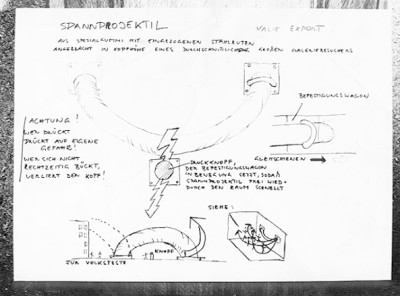 SPANNPROJEKTIL
VALIE EXPORT
AUS SPEZIALGUMMI MIT EINGEZOGENEN STAHLRUTEN
ANGEBRACHT IN KOPFHÖHE EINES DURCHSCHNITTLICH GROßEN GALERIEBESUCHERS
BEFESTIGUNGSWAGON
ACHTUNG!
WER DRÜCKT
DRÜCKT AUF EIGENE
GEFAHR!
WER SICH NICHT
RECHTZEITIG BÜCKT,
VERLIERT DEN KOPF!
GLEITSCHIENEN
DRUCKKNOPF,
DER BEFESTIGUNGSWAGON
IN BEWEGUNG SETZT, SODAß
SPANNPROJEKTIL FREI WIRD +
DURCH DEN RAUM SCHNELLT
SIEHE:
KNOPF
FÜR VOLKSFESTE